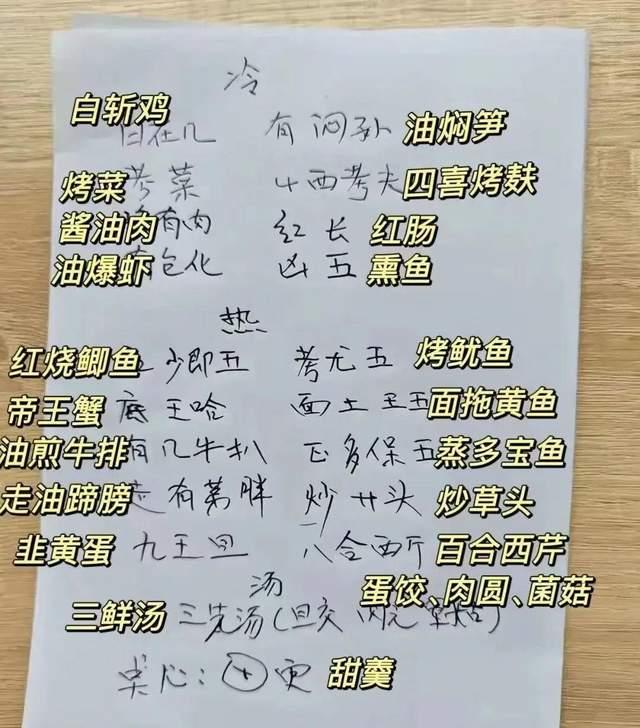 冷
白斩鸡 白在几 有闷孙 油焖笋
烤菜 考菜 4西考夫 四喜烤麸
酱油肉 有肉 红长 红肠
油爆虾 包化 凶五 熏鱼
热
红烧鲫鱼 少即五 考尤五 烤鱿鱼
帝王蟹 底王哈 面土王五 面拖黄鱼
油煎牛排 有几牛扒 正多保五 蒸多宝鱼
走油蹄膀 走有弟胖 炒廿头 炒草头
韭黄蛋 九王旦 八合西斤 百合西芹
汤 蛋饺、肉圆、菌菇
三鲜汤 三先汤(旦交 肉元
点心: 甜羹